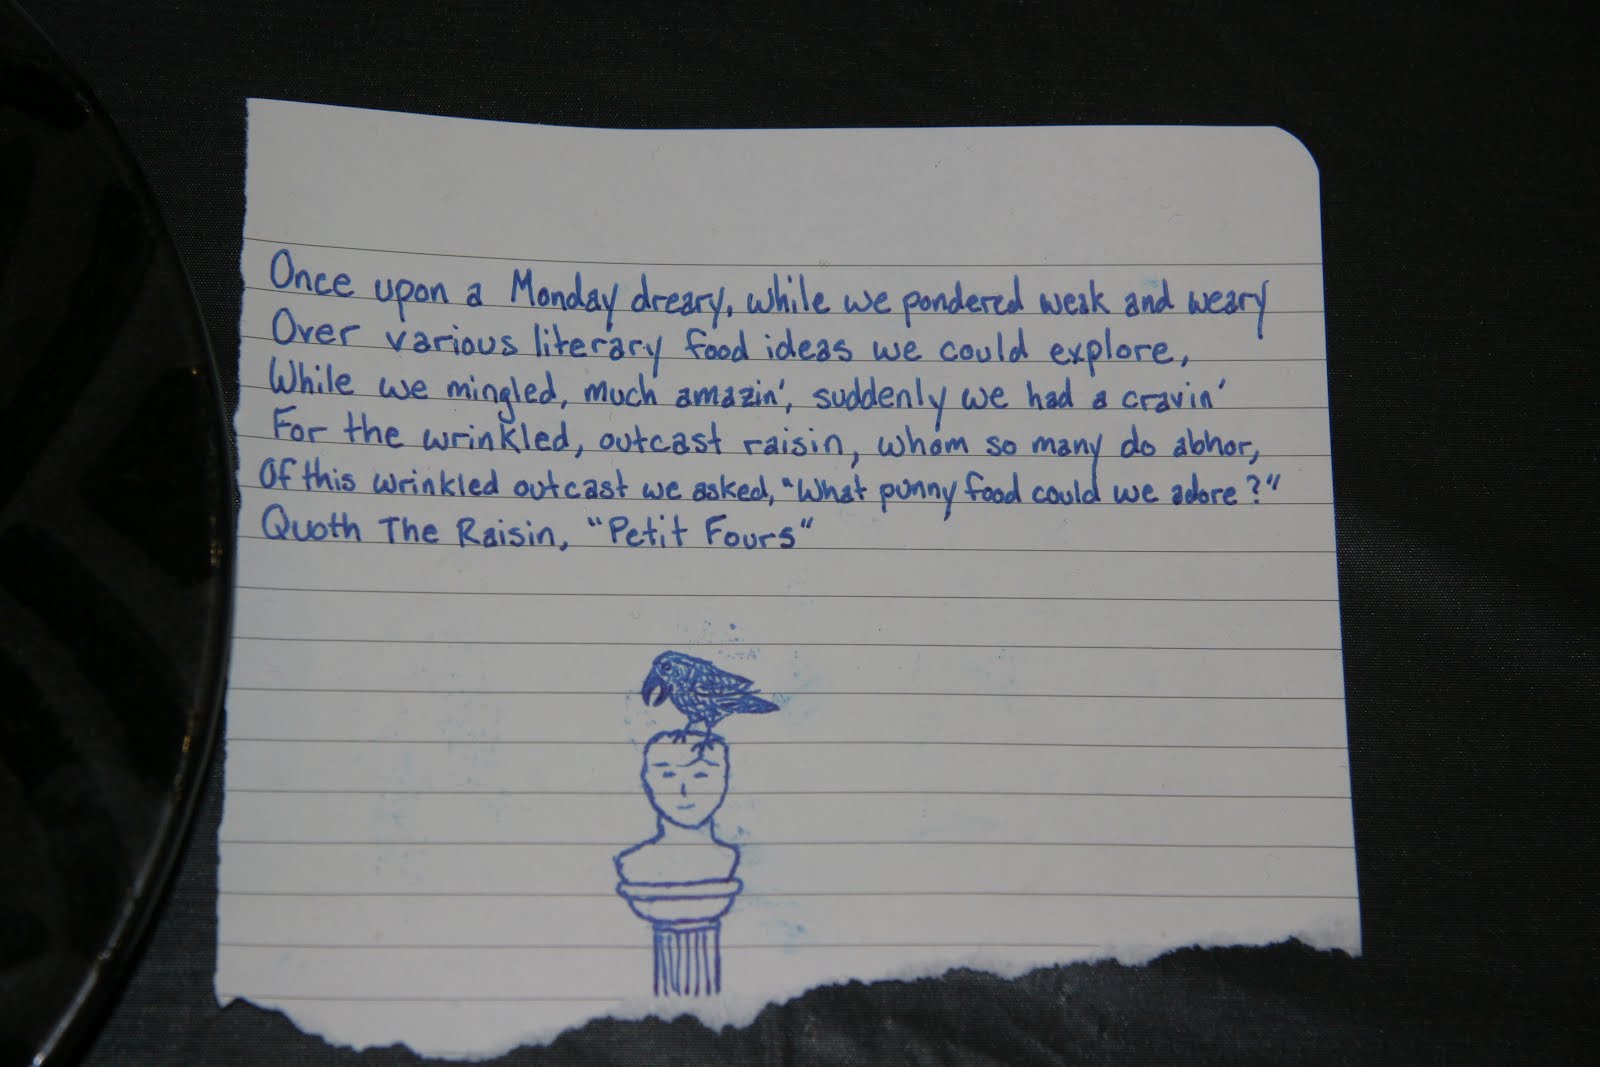 Once upon a Monday dreary, while we pondered weak and weary
Over various literary food ideas we could explore,
While we mingled, much amazin', suddenly we had a cravin'
For the wrinkled, outcast raisin, whom so many do abhor,
Of this wrinkled outcast we asked, "What punny food could we adore?"
Quoth The Raisin, "Petit Fours"